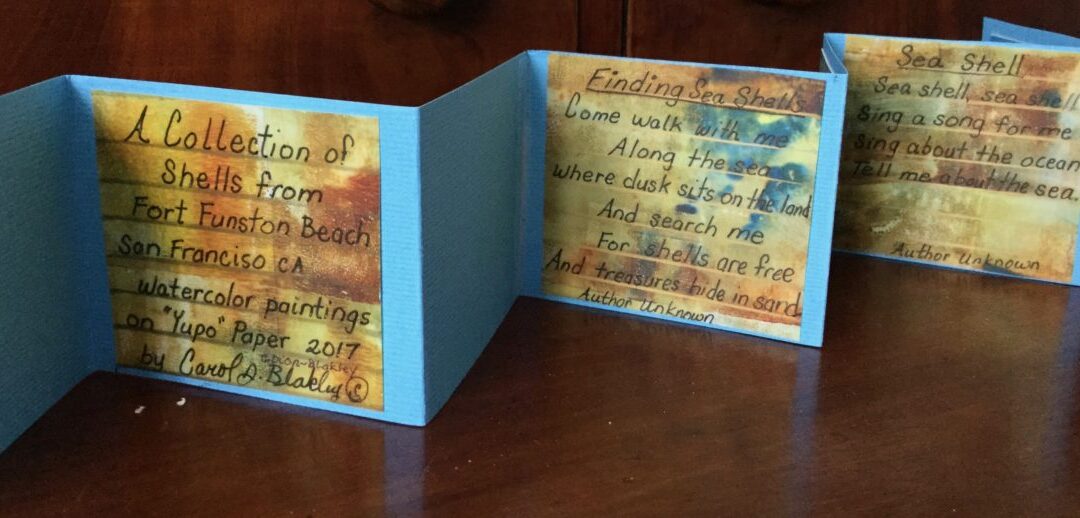 A Collection of
Shells from
Fort Funston Beach
San Franciso CA
watercolor paintings
on "Yupo" Paper 2017
by Carol D. Blakley
Finding Sea Shells
Come walk with me
Along the sea
where dusk sits on the land
And search me
For shells are free
And treasures hide in sand
Author Unknown
Sea Shell
Sea shell, sea shell
Sing a song for me
Sing about the ocean
Tell me about the sea.
Author Unknown